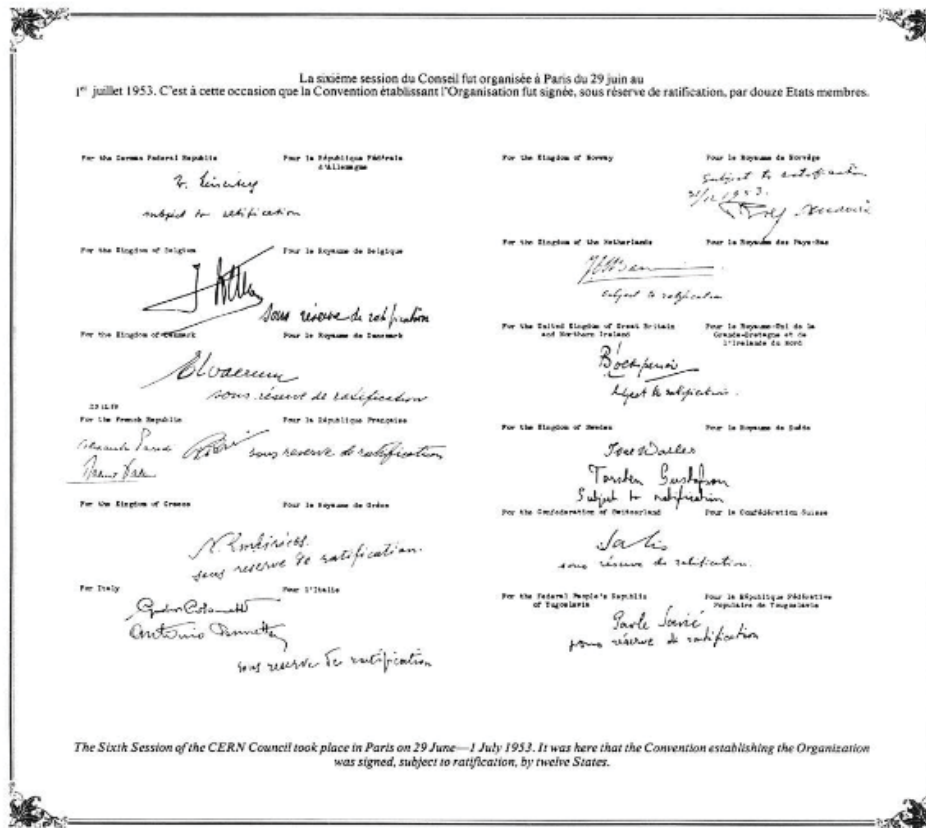 La sixième session du Conseil fut organisée à Paris du 29 juin au
1er juillet 1953. C'est à cette occasion que la Convention établissant l'Organisation fut signée, sous réserve de ratification, par douze Etats membres.
For the German Federal Republic
Pour la République Fédérale
d'Allemagne
subject to ratification
For the Kingdom of Belgium
Pour le Royaume de Belgique
sous réserve de ratification
For the Kingdom of Denmark
Pour le Royaume de Danemark
sous réserve de ratification
For the French Republic
Pour la République Française
sous reserve de ratification
For the Kingdom of Greece
Pour le Royaume de Grèce
sous reserve de ratification.
For Italy
Pour l'Italie
Antonio
sous reserve de ratification
For the Kingdom of Norway
Pour le Royaume de Norvège
Subject to ratification
1953.
For the Kingdom of the Netherlands
Pour le Royaume des Pays-Bas
subject to ratification
For the United Kingdom of Great Britain
and Northern Ireland
Pour le Royaume-Uni de la
Grande-Bretagne et de
l'Irelande du Nord
subject to ratification.
For the Kingdom of Sweden
Pour le Royaume de Suède
Ivar Waller
Torsten Gustafson
Subject to ratification
For the Confederation of Switzerland
Pour la Confédération Suisse
Salis
sous réserve de ratification.
For the Federal People's Republic
of Yugoslavia
Pour la République Fédérative
Populaire de Yougoslavie
Pavle Savić
sous réserve de ratification
The Sixth Session of the CERN Council took place in Paris on 29 June—1 July 1953. It was here that the Convention establishing the Organization
was signed, subject to ratification, by twelve States.